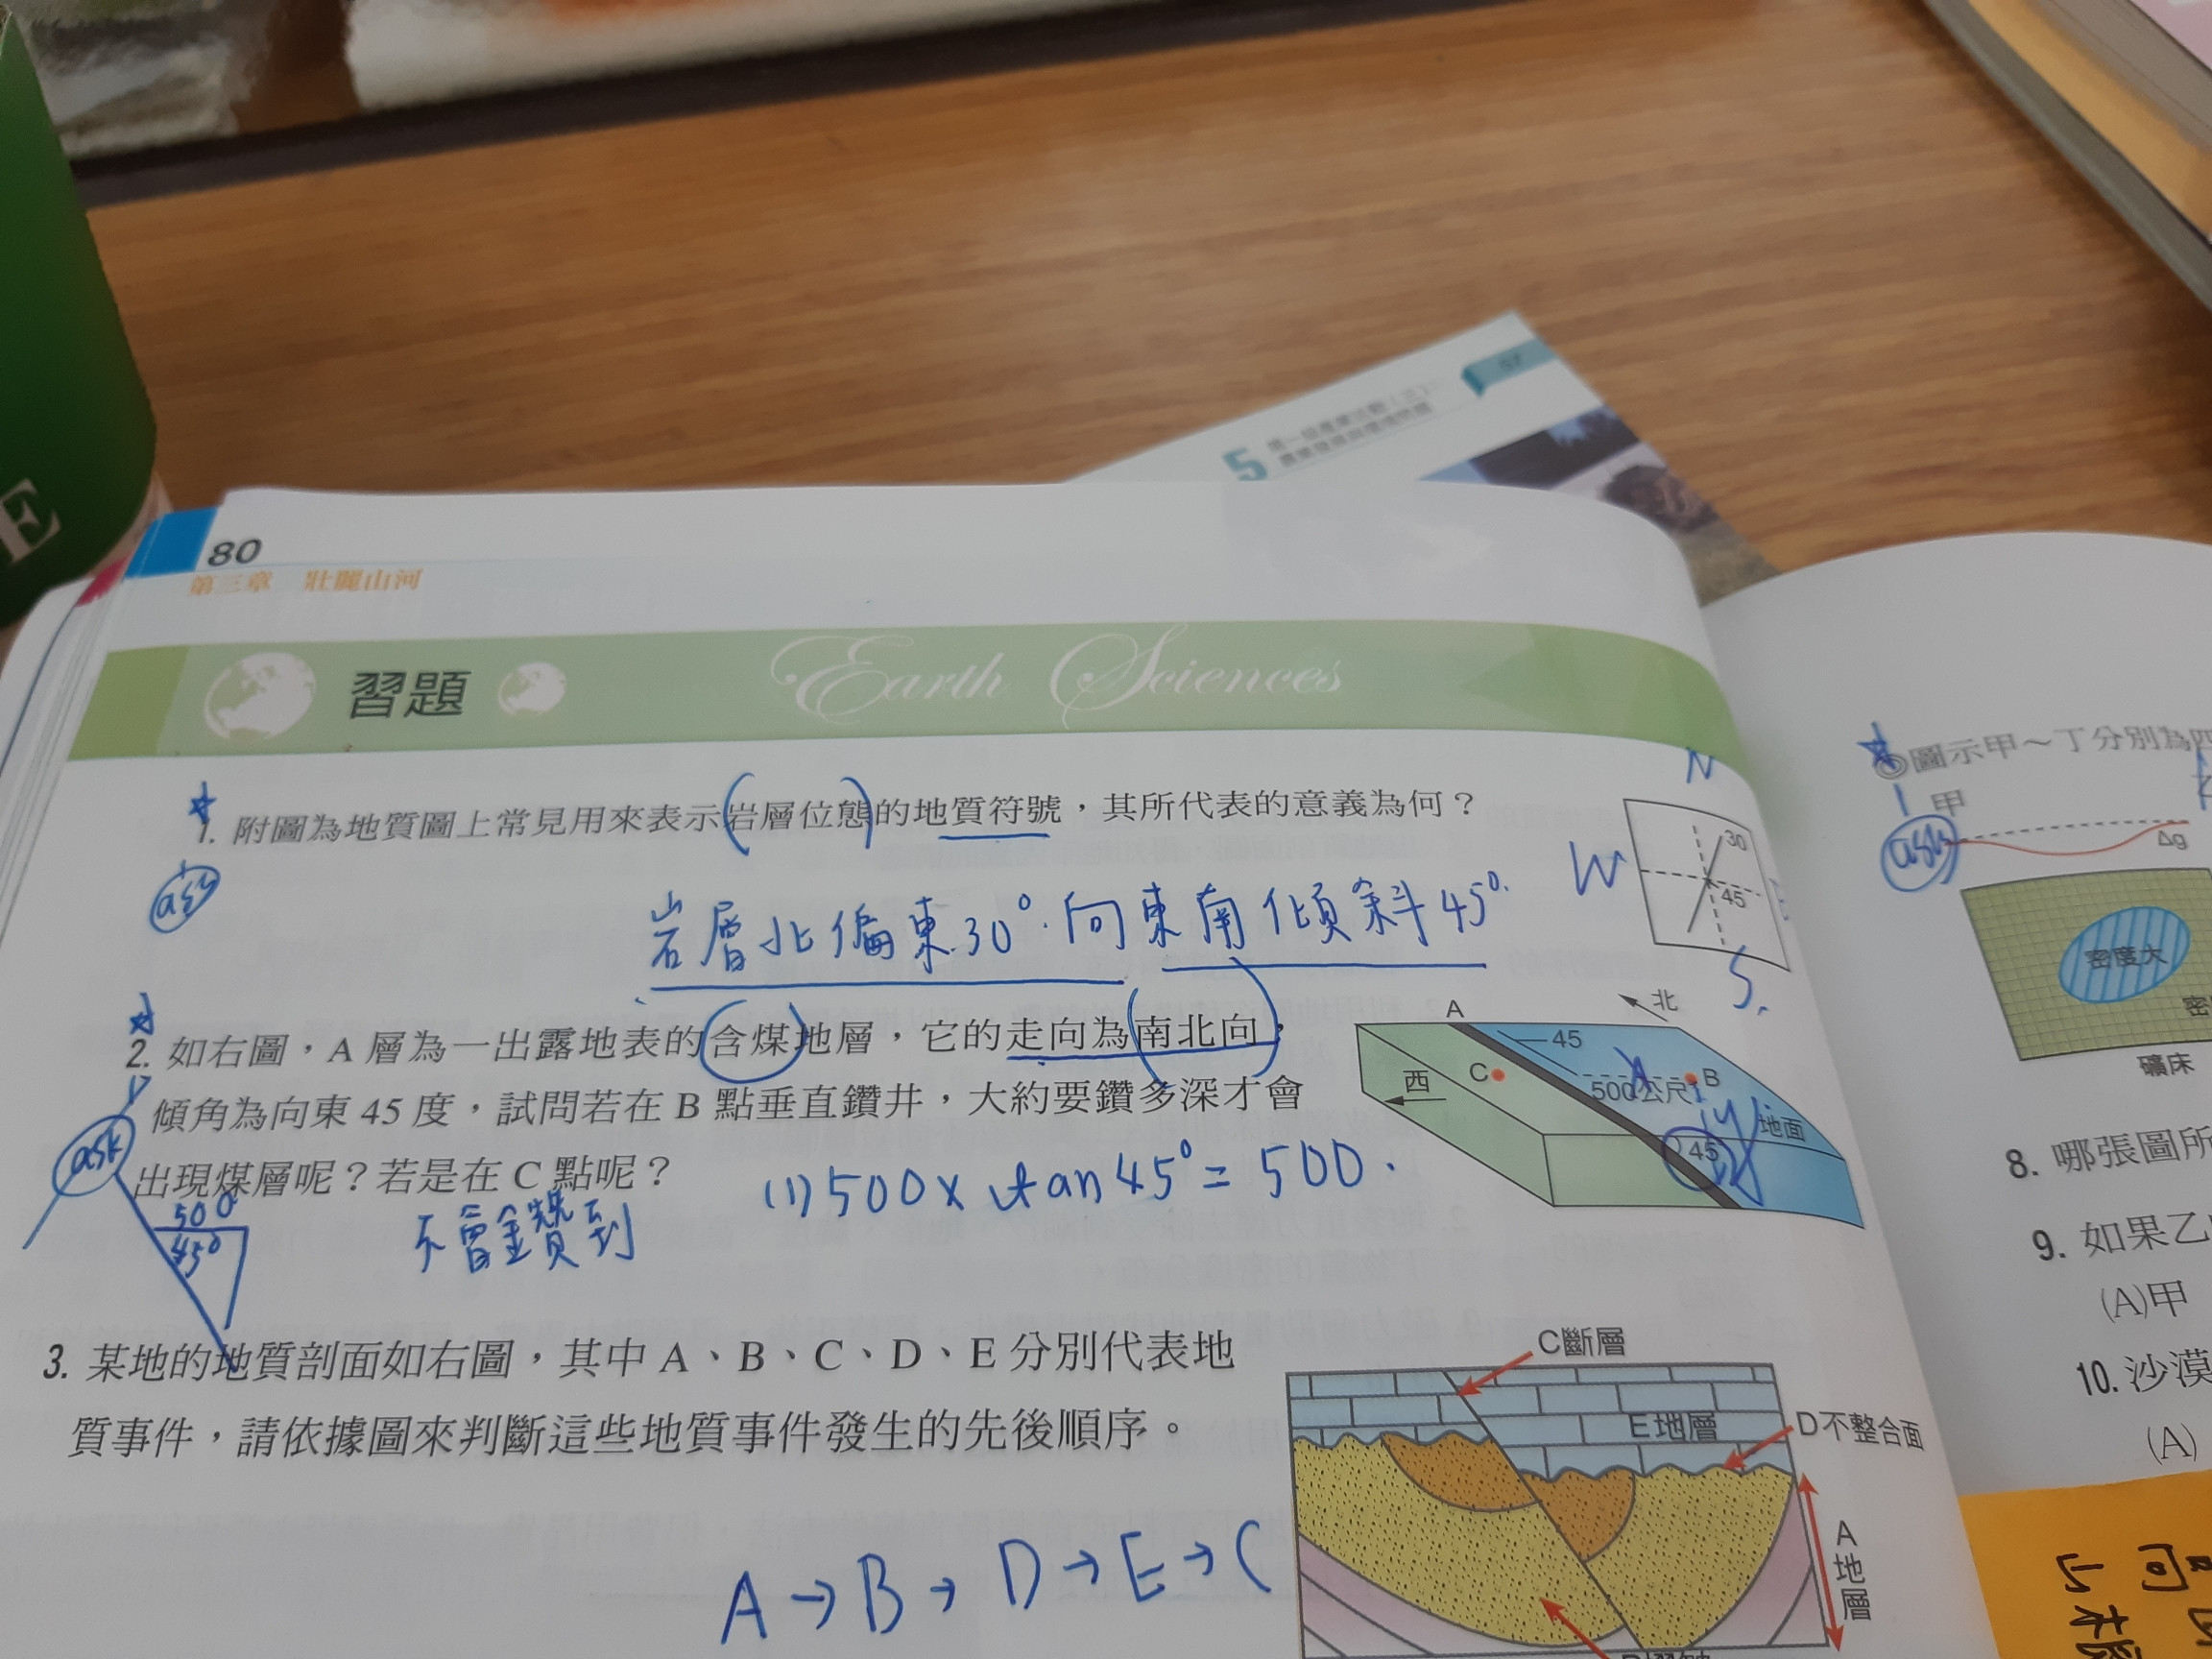 E
5
80
第三章 壯麗山河
習題
Earth Sciences
1. 附圖為地質圖上常見用來表示岩層位態的地質符號，其所代表的意義為何？
N
W
30
45
S.
岩層北偏東30°.向東南傾斜45°.
2. 如右圖，A 層為一出露地表的含煤地層，它的走向為南北向，
傾角為向東 45 度，試問若在 B 點垂直鑽井，大約要鑽多深才會
出現煤層呢？若是在 C 點呢？
ask
(1) 500 x tan 45° = 500.
不會鑽到
500
45°
A
北
45
C
西
B
500公尺
地面
45
3. 某地的地質剖面如右圖，其中 A、B、C、D、E 分別代表地
質事件，請依據圖來判斷這些地質事件發生的先後順序。
A → B → D → E → C
C斷層
E地層
D不整合面
A地層
圖示甲～丁分別為四
甲
ask
Δg
密度大
密
礦床
8. 哪張圖所
9. 如果乙
(A)甲
10. 沙漠
(A)